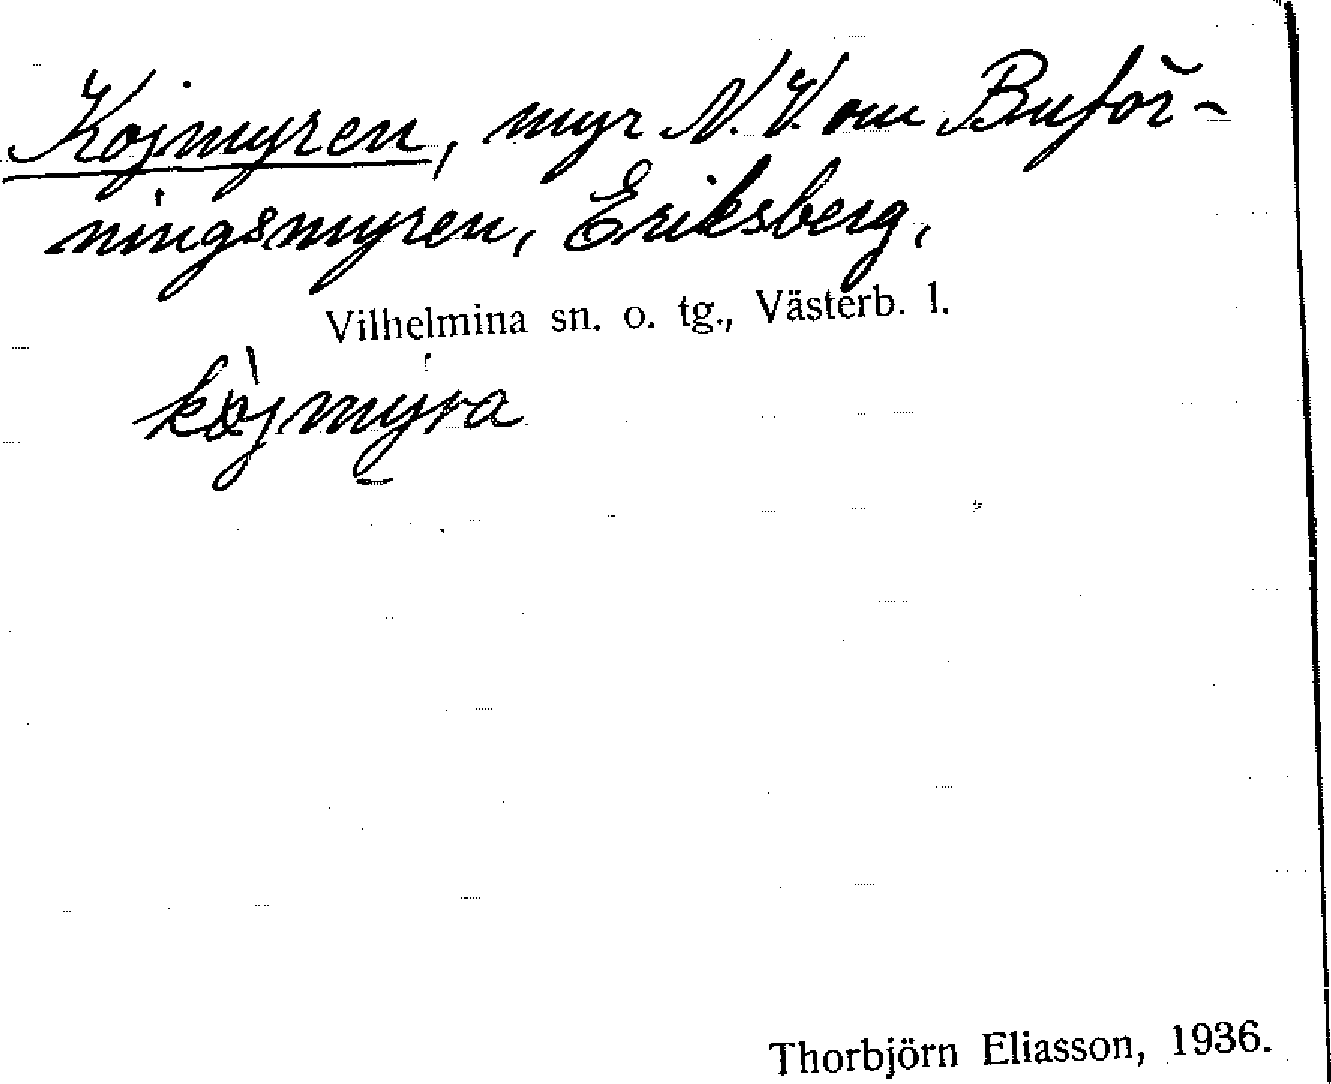 Kojmyren, myr N.V. om Buför-
ningsmyren, Eriksberg,
Vilhelmina sn. o. tg., Västerb. l.
Thorbjörn Eliasson, 1936.